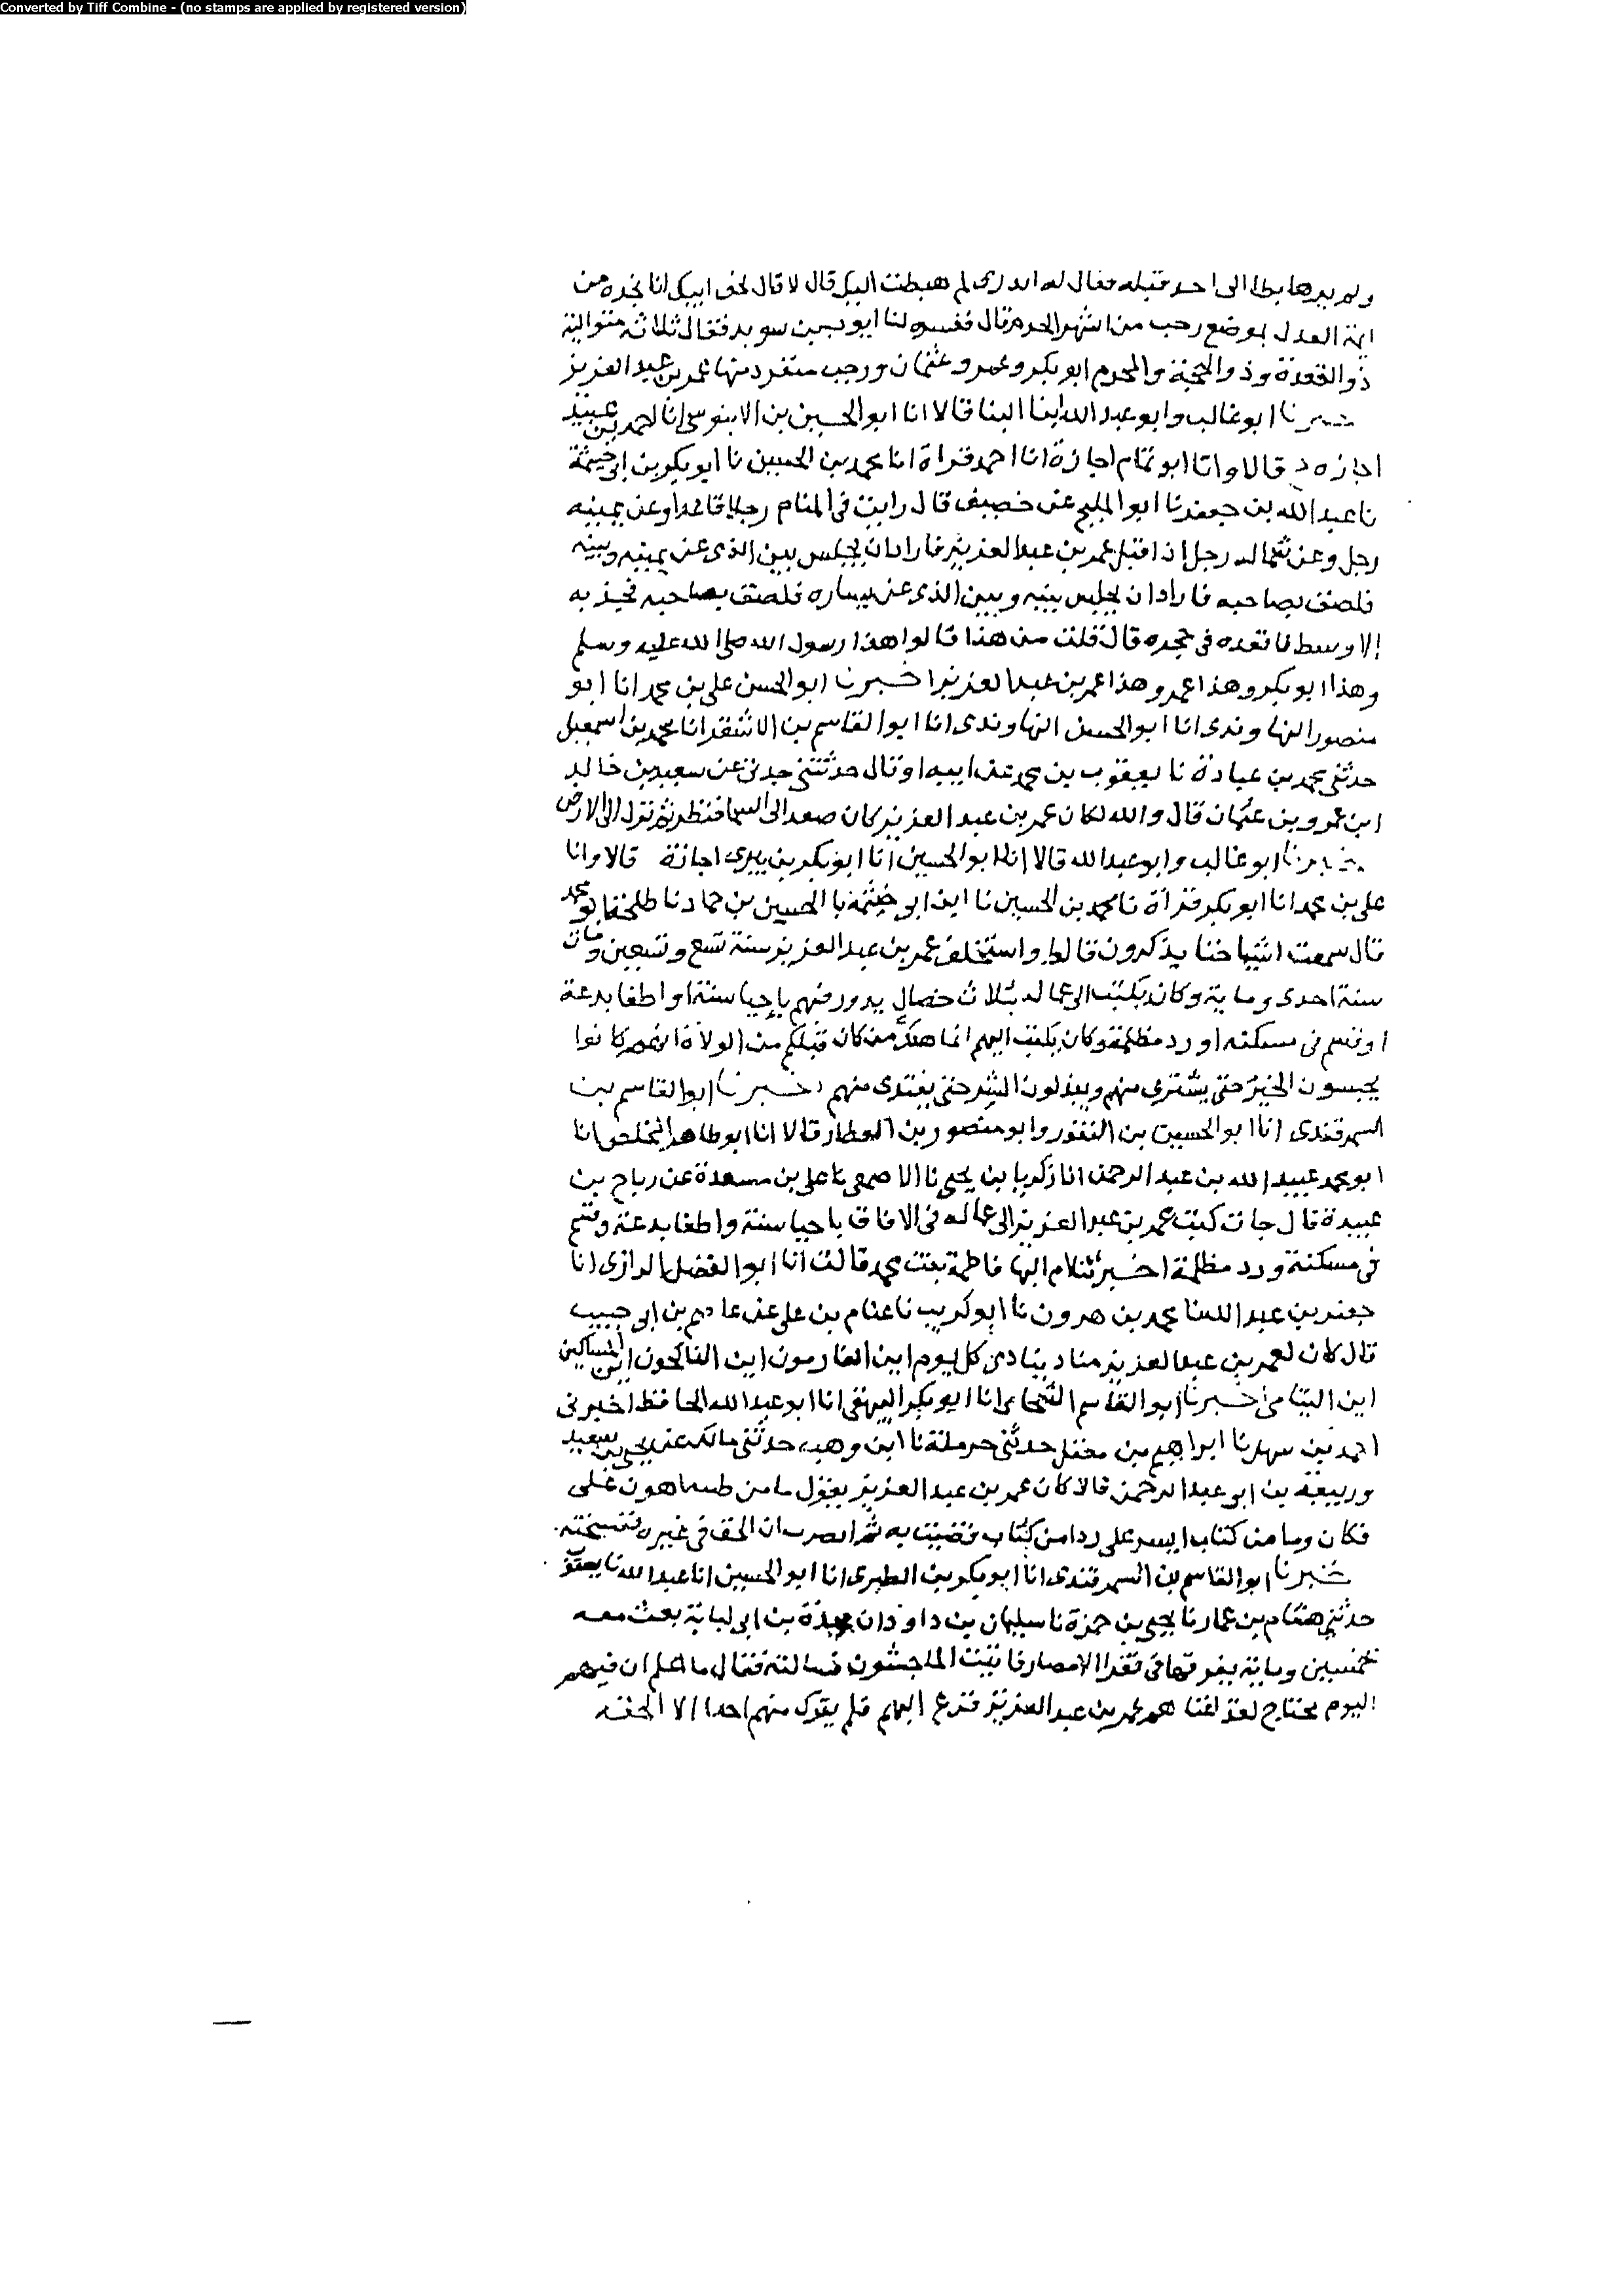 Converted by Tiff Combine - (no stamps are applied by registered version)
ولم يرهابطا الى احد قبله فقال له اتدرى لم هبطت اليك قال لا قال لحق ابيك انا نجده من
ايمة العدل بموضع رجب من اشهر الحرم قال ففسره لنا ايوب بن سويد فقال ثلاثة متوالية
ذو القعدة وذو الحجة والمحرم ابو بكر وعمر وعثمان ورجب منفرد منها عمر بن عبد العزيز
خبرنا ابو غالب وابو عبد الله ابنا البنا قالا انا ابو الحسين بن الابنوسى انا احمد بن عبيد
اجازه قالا وانا ابو تمام اجازة انا احمد قراة انا محمد بن الحسين نا ابو بكر بن ابى خيثمة
نا عبد الله بن جعفر نا ابو المليح عن خصيف قال رايت فى المنام رجلا قاعدا وعن يمينه
رجل وعن شماله رجل اذ اقبل عمر بن عبد العزيز فاراد ان يجلس بين الذى عن يمينه وبينه
فلصق بصاحبه فاراد ان يجلس بينه وبين الذى عن يساره فلصق بصاحبه فجذبه
الاوسط فاقعده فى حجره قال فقلت من هذا قالوا هذا رسول الله صلى الله عليه وسلم
وهذا ابو بكر وهذا عمر وهذا عمر بن عبد العزيز اخبرنا ابو الحسن على بن محمد انا ابو
منصور النهاوندى انا ابو الحسين النهاوندى انا ابو القاسم بن الاشقر انا محمد بن اسمعيل
حدثنى محمد بن عبادة نا يعقوب بن محمد عن ابيه او قال حدثتنى جدتى عن سعيد بن خالد
ابن عمرو بن عثمان قال والله لكان عمر بن عبد العزيز كان صعد الى السما فنظر ثم نزل الى الارض
خبرنا ابو غالب وابو عبد الله قالا انا ابو الحسين انا ابو بكر بن بيرى اجازة قالا وانا
على بن محمد انا ابو بكر قراة نا محمد بن الحسين نا ابن ابو خيثمة نا الحسين بن حماد نا طلحة ابو محمد
قال سمعت اشياخنا يذكرون قالوا واستخلف عمر بن عبد العزيز سنة تسع وتسعين ومات
سنة احدى وماية وكان يكتب الى عماله بثلاث خصال يدور فيهم باحيا سنة او اطفا بدعة
او قسم فى مسكنه او رد مظلمة وكان يكتب اليهم انما هلك من كان قبلكم من الولاة انهم كانوا
يحبسون الخير حتى يشترى منهم ويبذلون الشر حتى يفتدى منهم اخبرنا ابو القاسم بن
السمرقندى انا ابو الحسين بن النقور وابو منصور بن العطار قالا انا ابو طاهر المخلص انا
ابو محمد عبيد الله بن عبد الرحمن انا زكريا بن يحيى نا الاصمعى نا على بن مسعدة عن رباح بن
عبيدة قال جات كتب عمر بن عبد العزيز الى عماله فى الافاق باحيا سنة واطفا بدعة وقسم
فى مسكنة ورد مظلمة اخبرتنا ام البها فاطمة بنت محمد قالت انا ابو الفضل الرازى انا
جعفر بن عبد الله نا محمد بن هرون نا ابو كريب نا عثام بن على عن عاصم بن ابى حبيب
قال كان لعمر بن عبد العزيز مناد ينادى كل يوم اين الغارمون اين الناكحون اين المساكين
اين اليتامى اخبرنا ابو القاسم الشحامى انا ابو بكر البيهقى انا ابو عبد الله الحافظ اخبرنى
احمد بن سهل نا ابراهيم بن معقل حدثنى حرملة نا ابن وهب حدثنى مالك عن يحيى بن سعيد
وربيعة بن ابو عبد الرحمن قالا كان عمر بن عبد العزيز يقول ما من اهون على
فكان وما من كتاب ايسر على ردا من كتاب قضيت به ثم ابصرت ان الحق فى غيره ففسخته
خبرنا ابو القاسم بن السمرقندى انا ابو بكر بن الطبرى انا ابو الحسين انا عبد الله نا يعقوب
حدثنى هشام بن عمار نا يحيى بن حمزة نا سليمان بن داود ان عبدة بن ابى لبابة بعث معه
بخمسين وماية يفرقها فى فقرا الامصار فاتيت الماجشون فسالته فقال ما اعلم ان فيهم
اليوم محتاج لقد اغناهم عمر بن عبد العزيز فزع اليهم فلم يترك منهم احدا الا الحقه